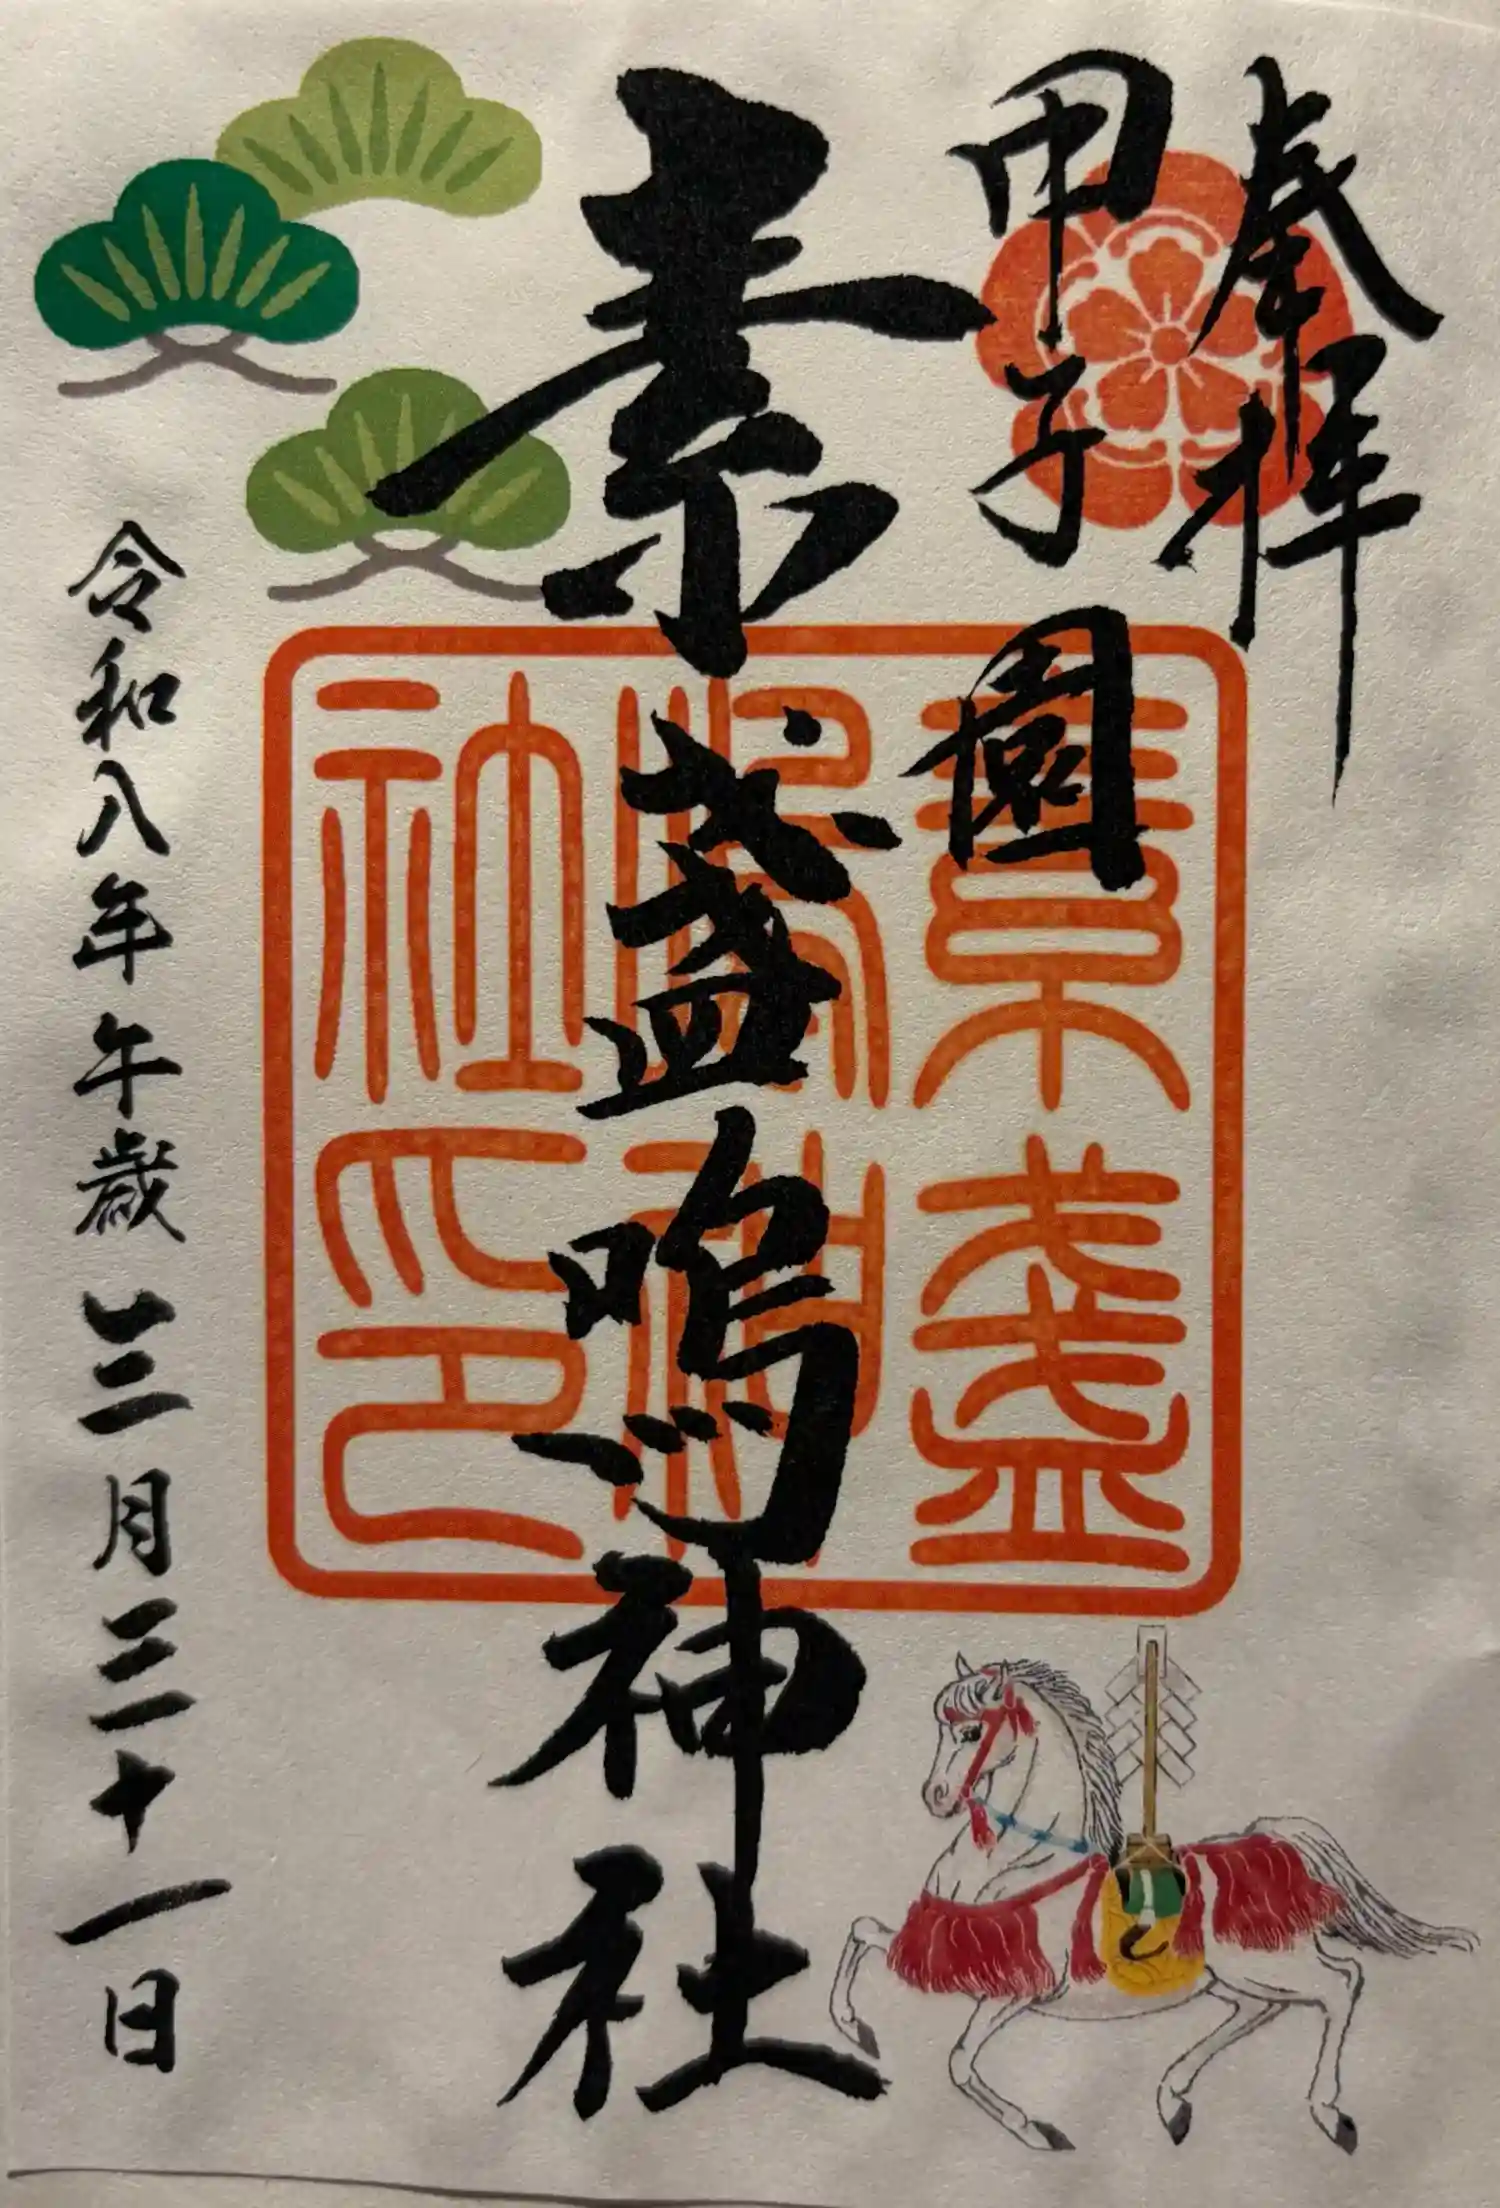 奉拝
甲子園
素盞嗚神社
令和八年午歳三月三十一日
素盞
嗚神
社印